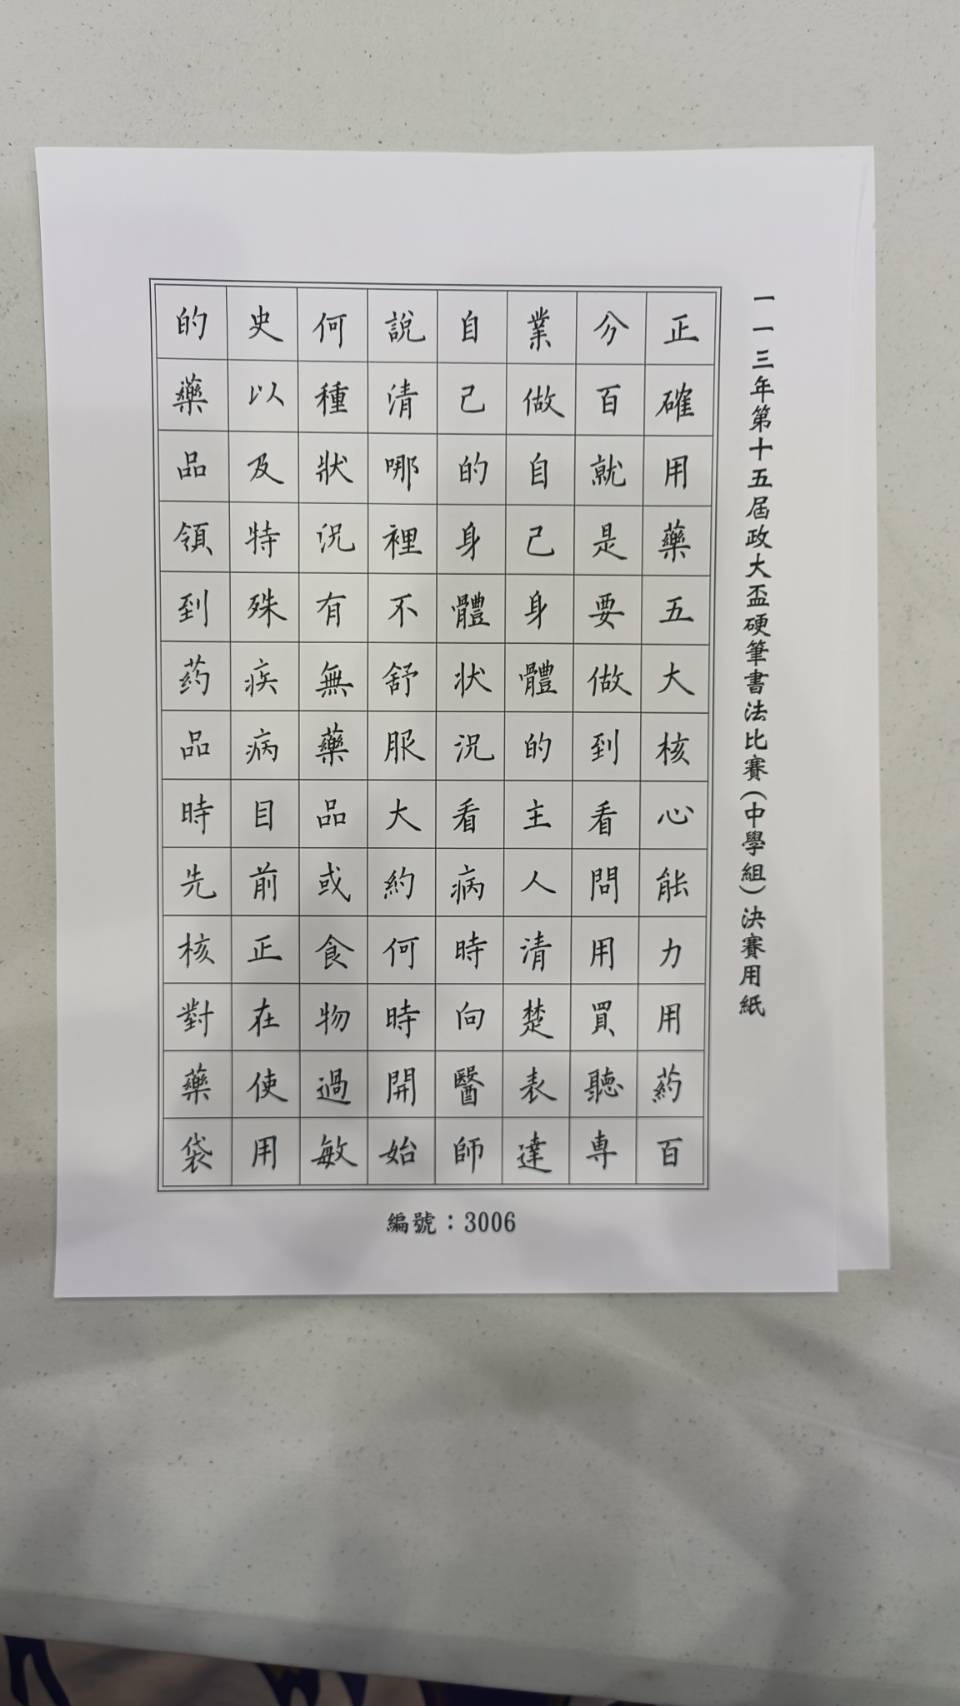 一一三年第十五屆政大盃硬筆書法比賽(中學組)決賽用紙
正確用藥五大核心能力用葯百
分百就是要做到看問用買聽專
業做自己身體的主人清楚表達
自己的身體狀況看病時向醫師
說清哪裡不舒服大約何時開始
何種狀況有無藥品或食物過敏
史以及特殊疾病目前正在使用
的藥品領到葯品時先核對藥袋
編號：3006